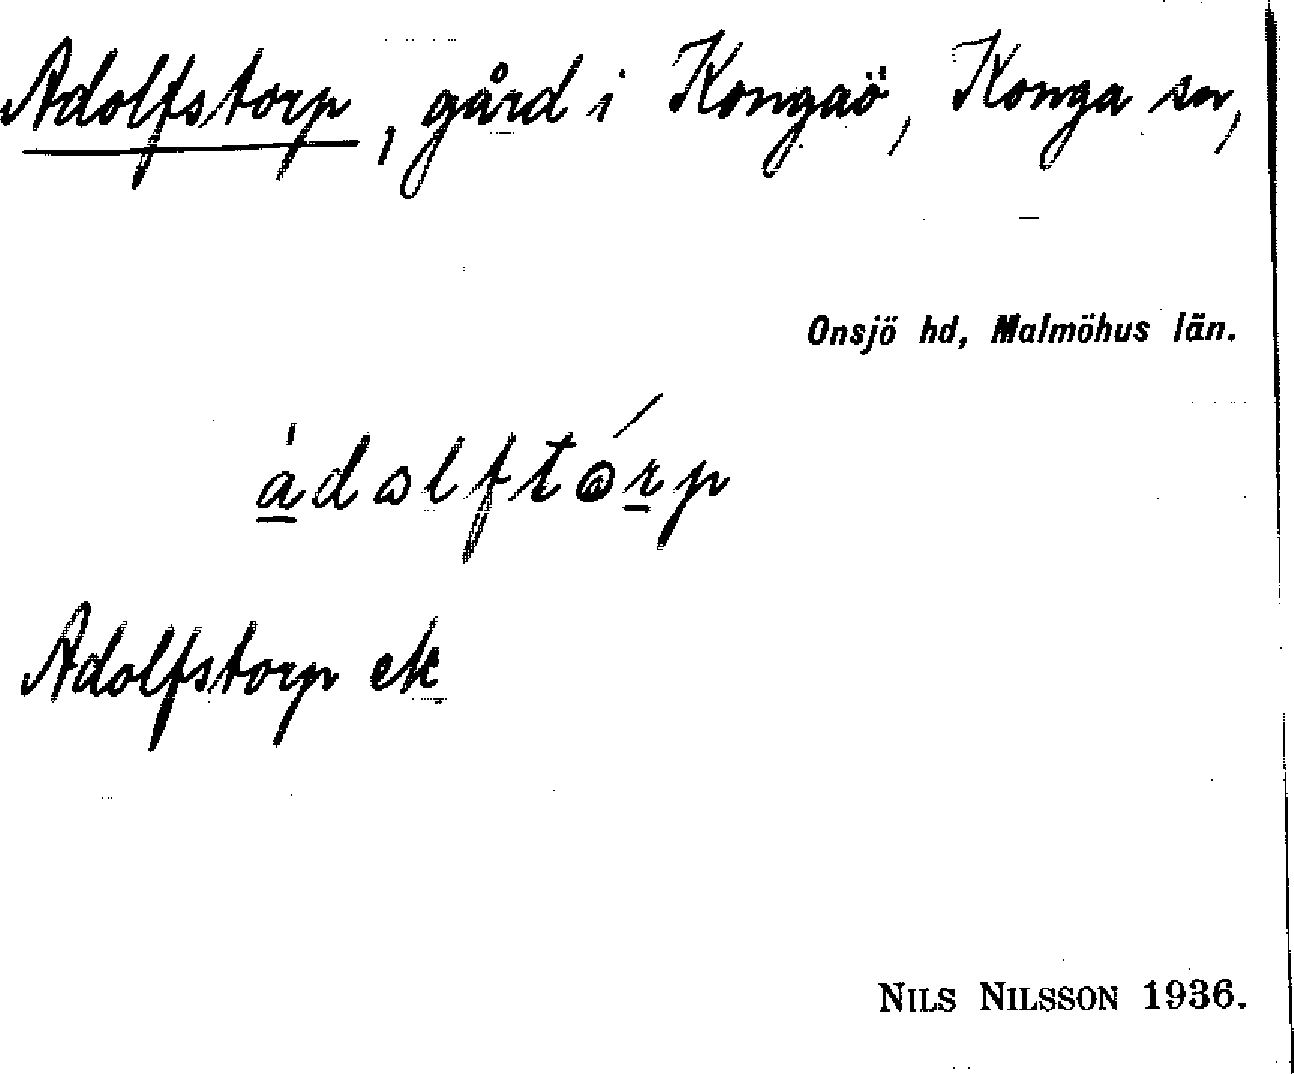 Adolfstorp, gård i Kongaö, Konga sn,
Onsjö hd, Malmöhus län.
àdɔlftǿrp
Adolfstorp ek
NILS NILSSON 1936.